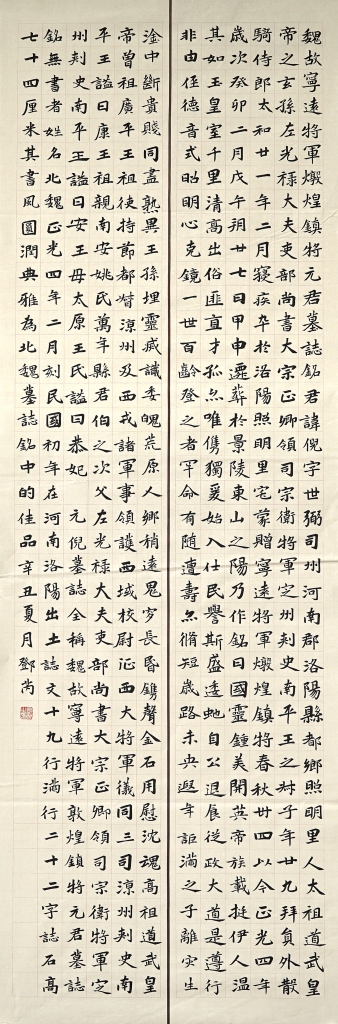 魏故寧遠將軍燉煌鎮將元君墓誌銘君諱倪字世弼司州河南郡洛陽縣都鄉照明里人太祖道武皇
帝之玄孫左光祿大夫吏部尚書大宗正卿領司宗衛將軍定州刾史南平王之㐮子年廿九拜員外散
騎侍郎太和廿一年二月寢疾卒於洛陽照明里宅蒙贈寧遠將軍燉煌鎮將春秋廿四以今正光四年
歲次癸卯二月戊午朔廿七日甲申遷葬於景陵東山之陽乃作銘曰國靈鍾美開英帝族載挺伊人溫
其如玉皇室千里清高出俗匪直才孤亦唯儁獨爰始入仕民譽斯盛逶虵自公退食從政大道是遵行
非由徑德音式昭明心克鏡一世百齡登之者罕命有隨遭壽亦脩短歲路未央遐年詎滿之子離灾生
淦中斷貴賤同盡熟異王孫埋靈烕識委魄荒原人鄉稍遠鬼穸長昏鐫聲金石用慰沈魂高祖道武皇
帝曾祖廣平王祖使持節都督涼州及西戎諸軍事領護西域校尉征西大將軍儀同三司涼州刾史南
平王謚曰康王祖親南安姚氏萬年縣君伯之次父左光祿大夫吏部尚書大宗正卿領司宗衛將軍定
州刾史南平王謚曰安王母太原王氏謚曰恭妃 元倪墓誌全稱魏故寧遠將軍敦煌鎮將元君墓誌
銘無書者姓名北魏正光四年二月刻民國初年在河南洛陽出土誌文十九行滿行二十二字誌石高
七十四厘米其書風圓潤典雅為北魏墓誌銘中的佳品辛丑夏月鄧尚